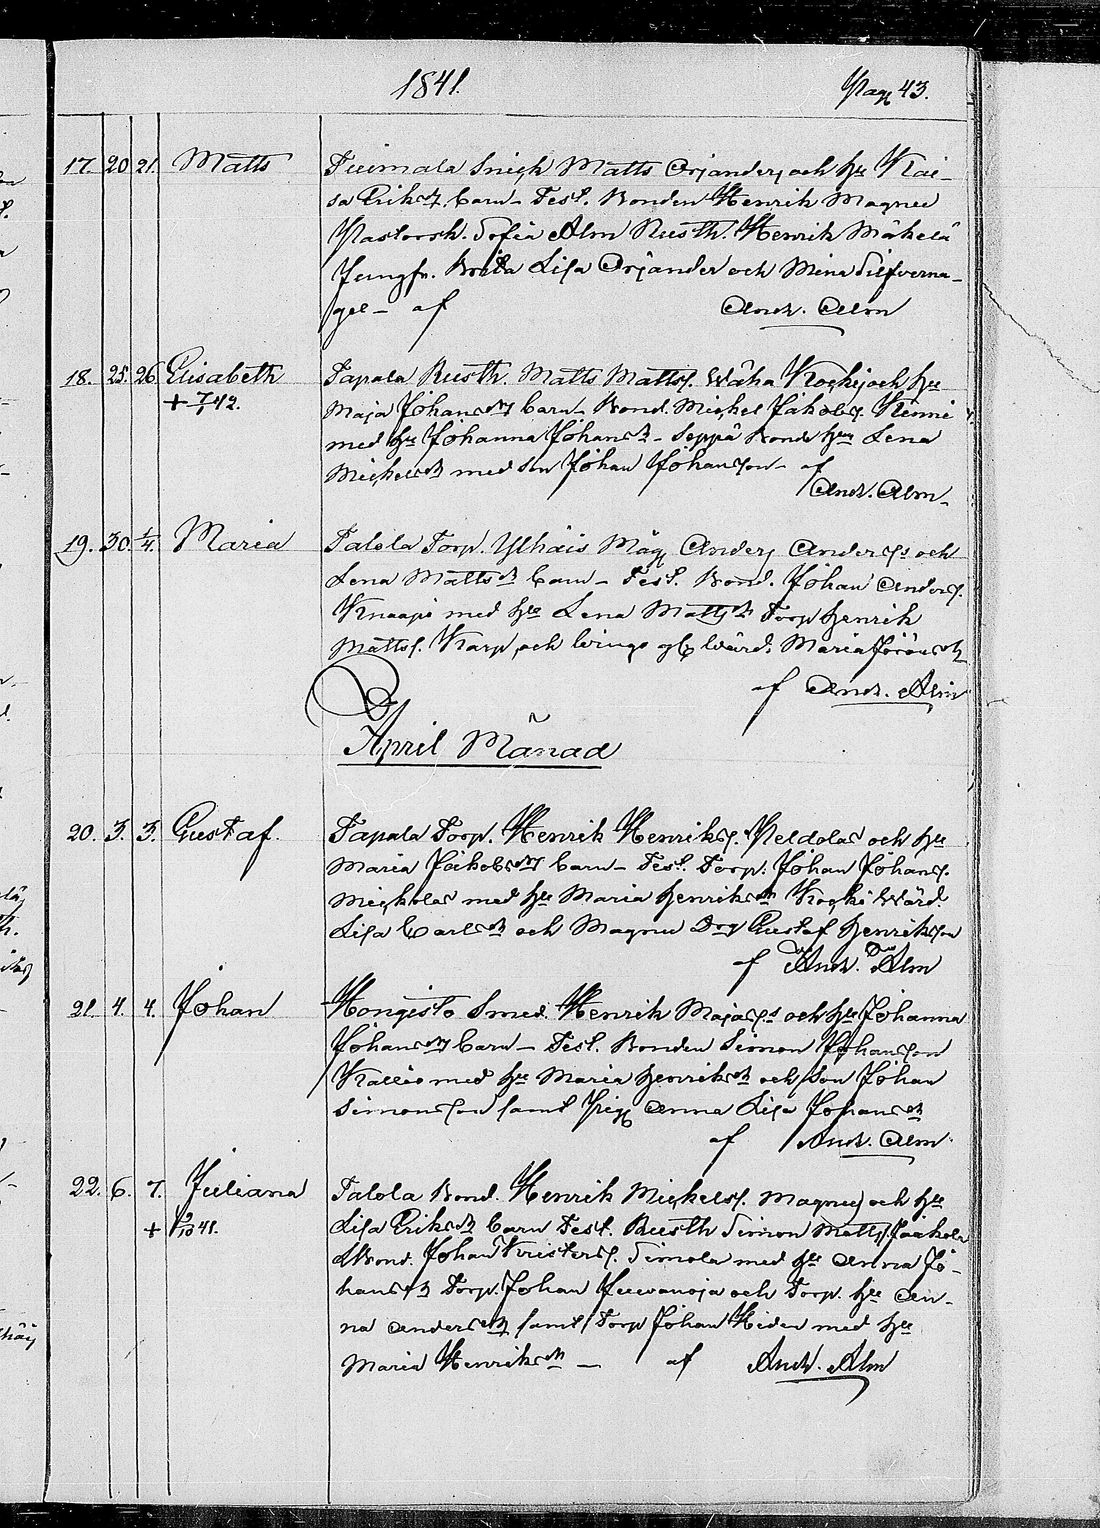 1841. Pag 43.
17. 20 21. Matts Tuimala Snick Matts Orjander och hu Kai-
sa Eriksdr barn - Test. Bonden Henrik Magnu
Pastorsk. Sofia Alm Rusth. Henrik Mäkelä
Jungfr. Brita Lisa Orjander och Mina Silfverna-
gel - af Andr. Alm
18. 25. 26 Elisabeth Tapala Rusth. Matts Matts. Wäha Kocki och hu
+ 7/1 42. Maja Johansdr barn - Bond. Michel Jakobs.
med hu Johanna Johansdr - Seppä Bonde hu Lena
Michelsdr med son Johan Johansson - af
Andr. Alm -
19. 30. 1/4. Maria Talola Torp. Ylhäis Måg Anders Anders och
Lena Mattsdr barn - Test. Bond. Johan Anders.
Knaapi med hu Lena Mattsdr Torp Henrik
Matts. Karp och wärd. Maria
af Andr. Alm
April Månad
20. 3. 3. Gustaf. Tapala Torp. Henrik Henriks. Peldola och hu
Maria Jakobsdr barn - Test. Torp. Johan Johans.
Mickola med hu Maria Henriksdr Kocki Wärd.
Lisa Carlsdr och Magnu Drg Gustaf Henrikson
af Andr. Alm
21 4. 4. Johan Hongisto Smed. Henrik Majas och hu Johanna
Johansdr barn - Test. Bonden Simon Johansson
Kallio med hu Maria Henriksdr och son Johan
Simonsson samt Pig Anna Lisa Johansdr
af Andr. Alm.
22. 6. 7. Juliana Talola Bond. Henrik Michels. Magnu och hu
+ 9/10 41. Lisa Eriksdr barn Test. Rusth Simon Matts. Jaakola
Bond. Johan Kristers. Simola med hu Anna Jo-
hansdr Torp. Johan Juvanoja och Torp. hu An-
na Andersdr samt Torp Johan Hiden med hu
Maria Henriksdr - af Andr. Alm